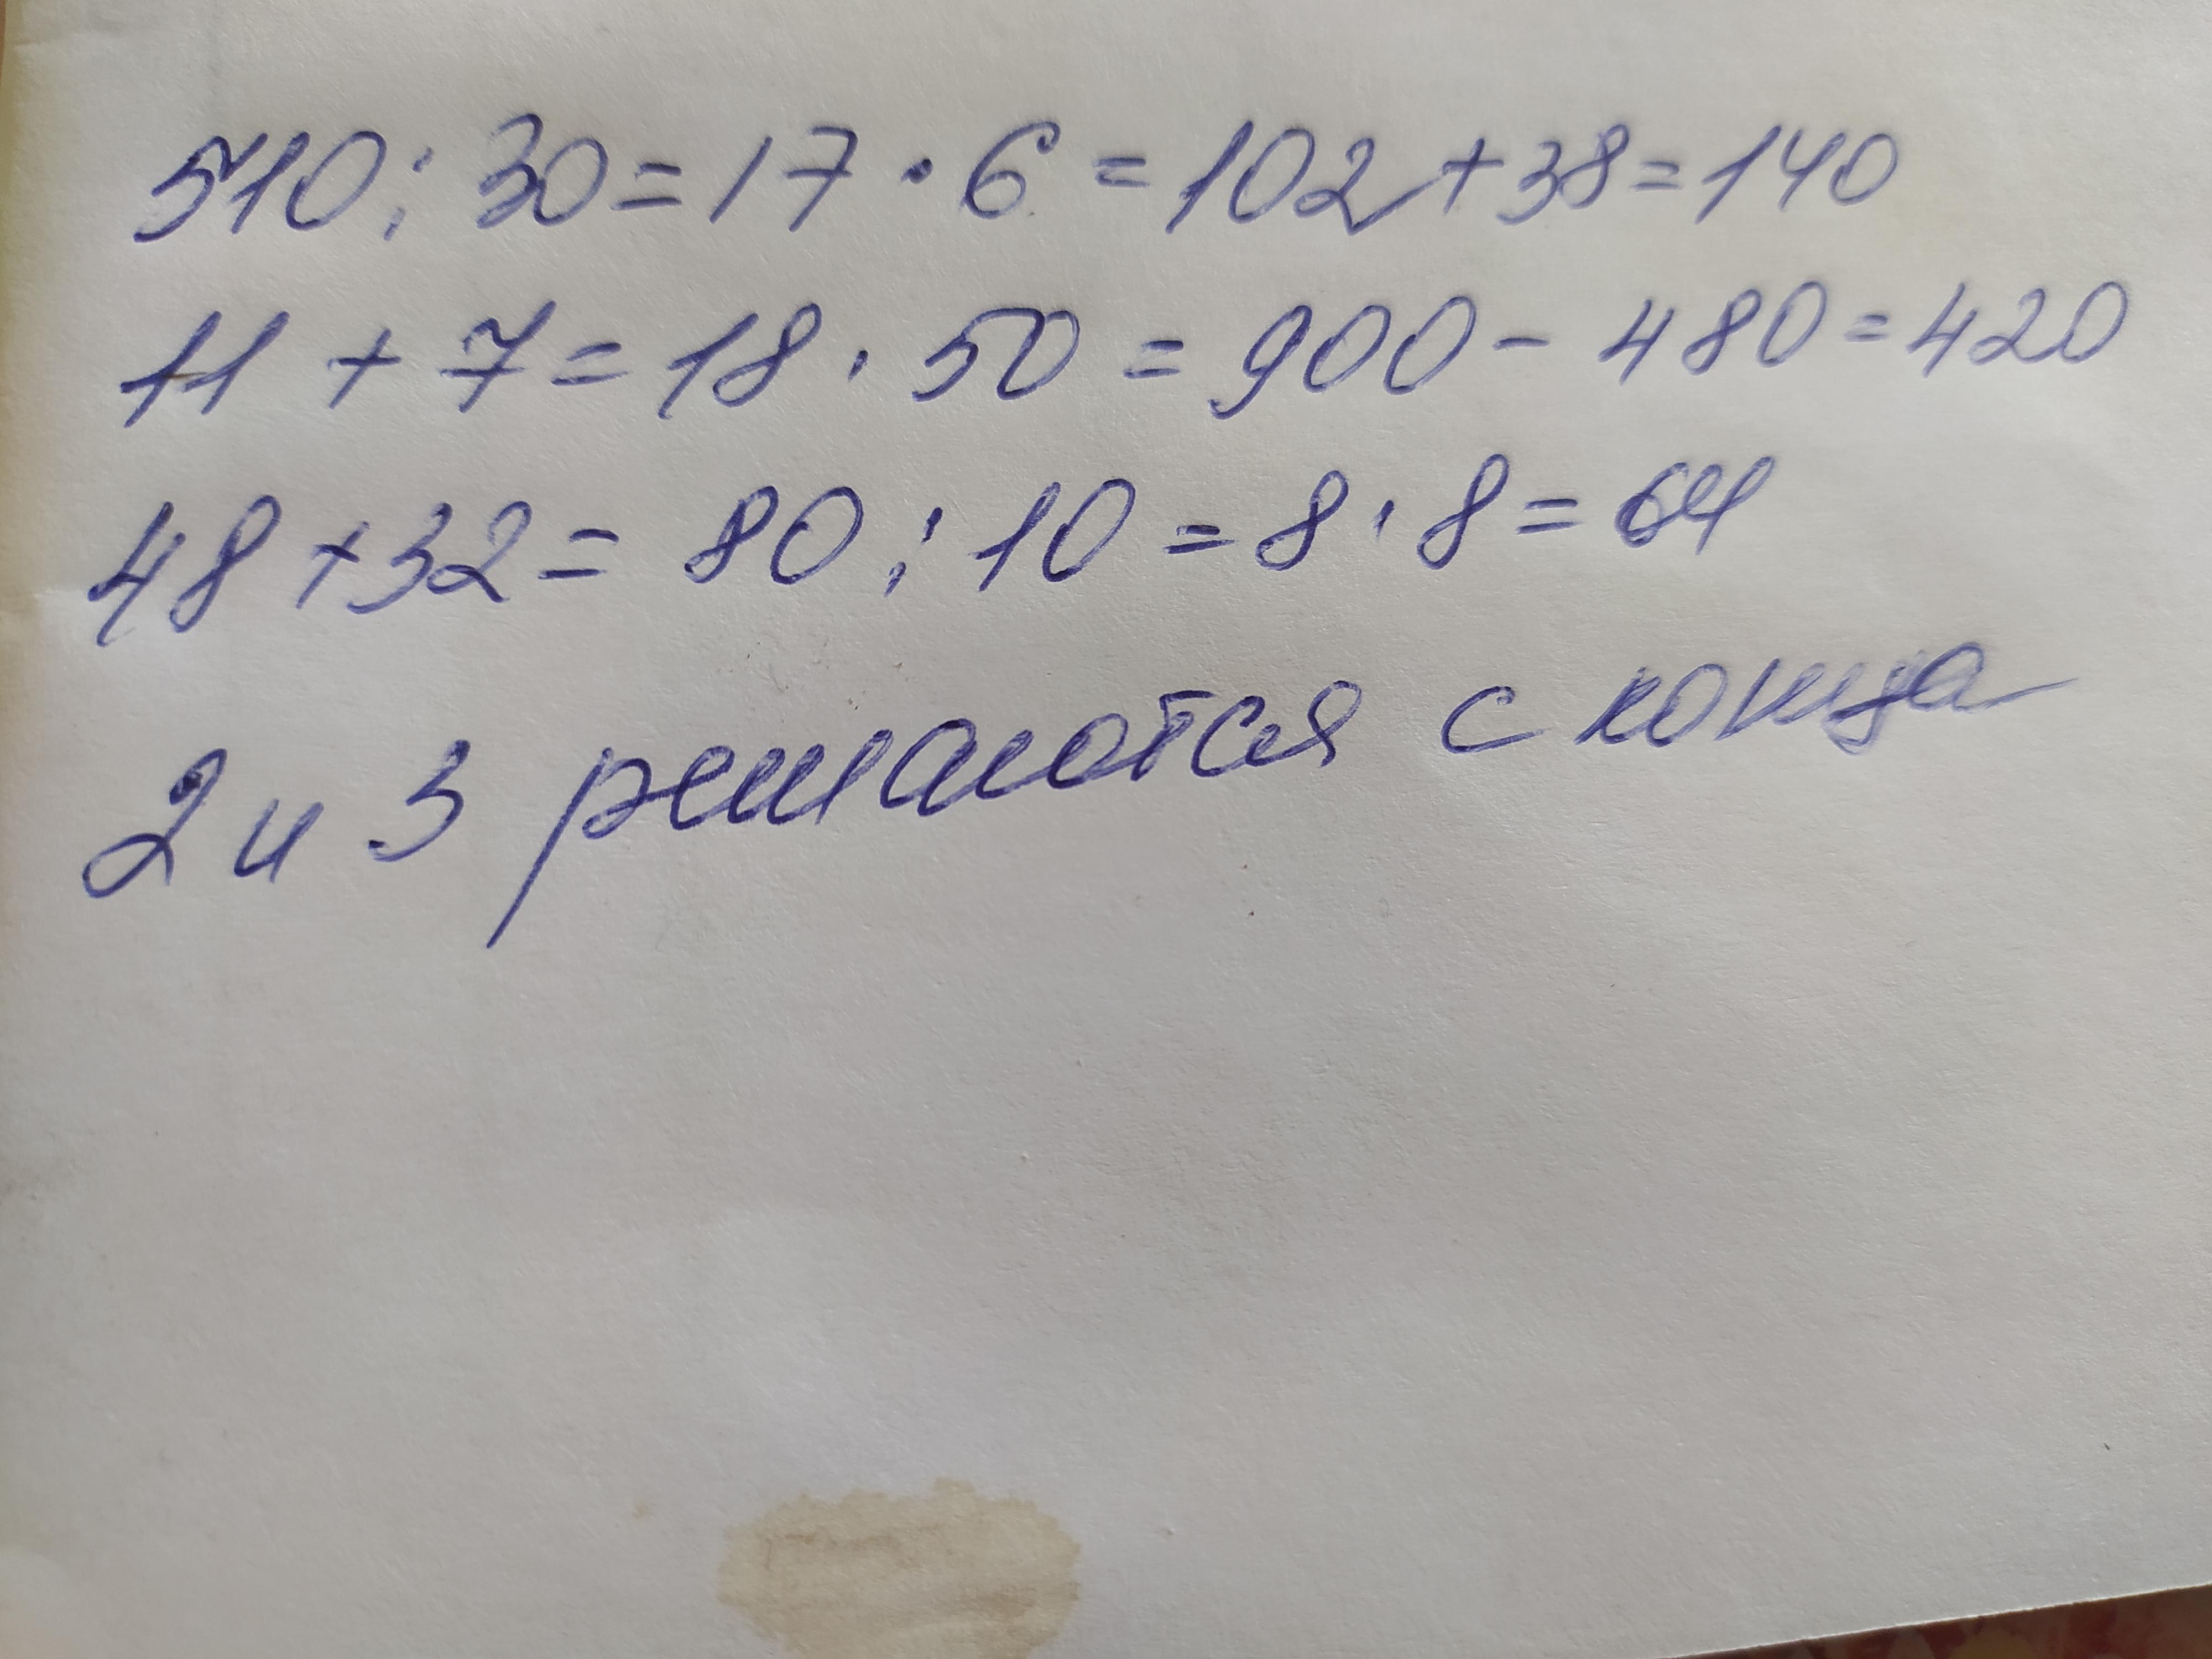 510 : 30 = 17 · 6 = 102 + 38 = 140
11 + 7 = 18 · 50 = 900 - 480 = 420
48 + 32 = 80 : 10 = 8 · 8 = 64
2 и 3 решаются с конца